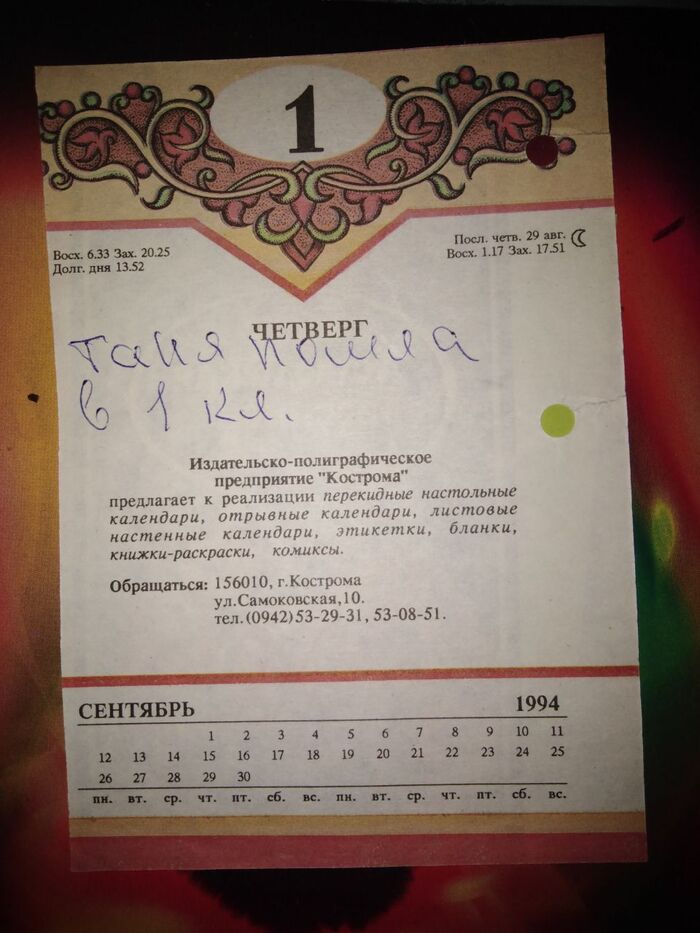 1
Восх. 6.33 Зах. 20.25
Долг. дня 13.52
Посл. четв. 29 авг.
Восх. 1.17 Зах. 17.51
ЧЕТВЕРГ
таня пошла
в 1 кл.
Издательско-полиграфическое
предприятие "Кострома"
предлагает к реализации перекидные настольные
календари, отрывные календари, листовые
настенные календари, этикетки, бланки,
книжки-раскраски, комиксы.
Обращаться: 156010, г.Кострома
ул.Самоковская,10.
тел.(0942)53-29-31, 53-08-51.
СЕНТЯБРЬ 1994
1 2 3 4 5 6 7 8 9 10 11
12 13 14 15 16 17 18 19 20 21 22 23 24 25
26 27 28 29 30
пн. вт. ср. чт. пт. сб. вс. пн. вт. ср. чт. пт. сб. вс.